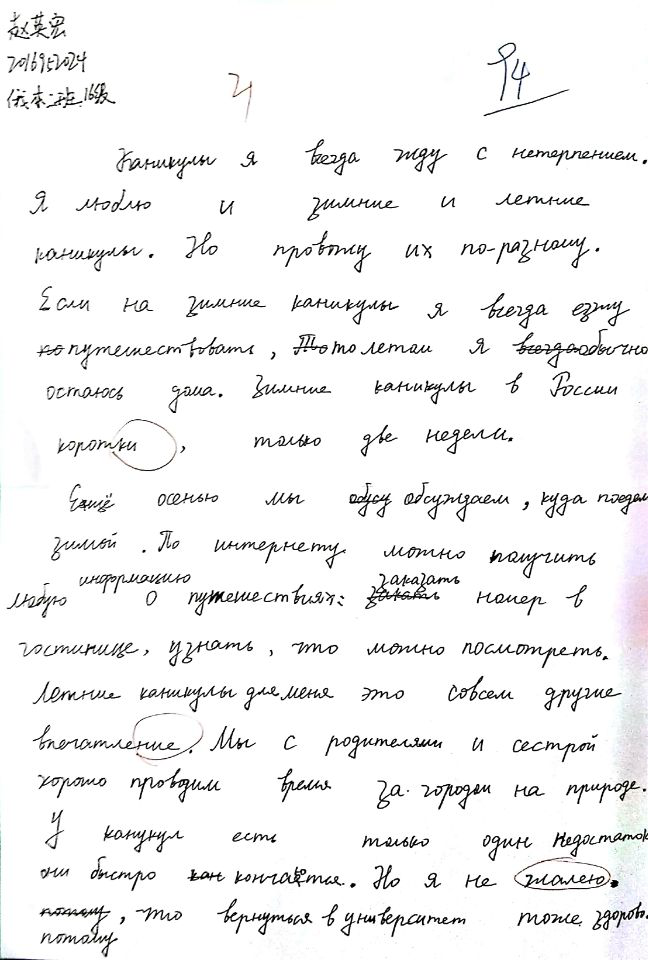 赵英宏
2016952024
俄本二班 16级
94
Каникулы я всегда жду с нетерпением.
Я люблю и зимние и летние
каникулы. Но провожу их по-разному.
Если на зимние каникулы я всегда езжу
путешествовать, то летом я обычно
остаюсь дома. Зимние каникулы в России
коротки, только две недели.
Ещё осенью мы обсуждаем, куда поедем
зимой. По интернету можно получить
информацию заказать
любую о путешествиях: номер в
гостинице, узнать, что можно посмотреть.
Летние каникулы для меня это совсем другие
впечатление. Мы с родителями и сестрой
хорошо проводим время за городом на природе.
У канукул есть только один недостаток
они быстро кончается. Но я не жалею.
, что вернуться в университет тоже здорово.
потому